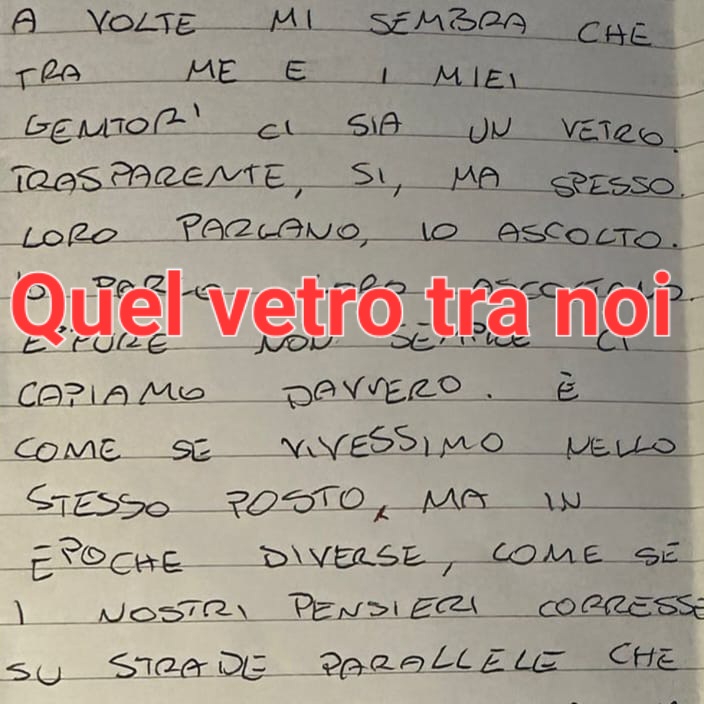 A VOLTE MI SEMBRA CHE
TRA ME E I MIEI
GENITORI CI SIA UN VETRO.
TRASPARENTE, SI, MA SPESSO.
LORO PARLANO, IO ASCOLTO.
IO PARLO LORO ASCOLTANO.
Quel vetro tra noi
EPPURE NON SEMPRE CI
CAPIAMO DAVVERO. È
COME SE VIVESSIMO NELLO
STESSO POSTO, MA IN
EPOCHE DIVERSE, COME SE
I NOSTRI PENSIERI CORRESSE
SU STRADE PARALLELE CHE